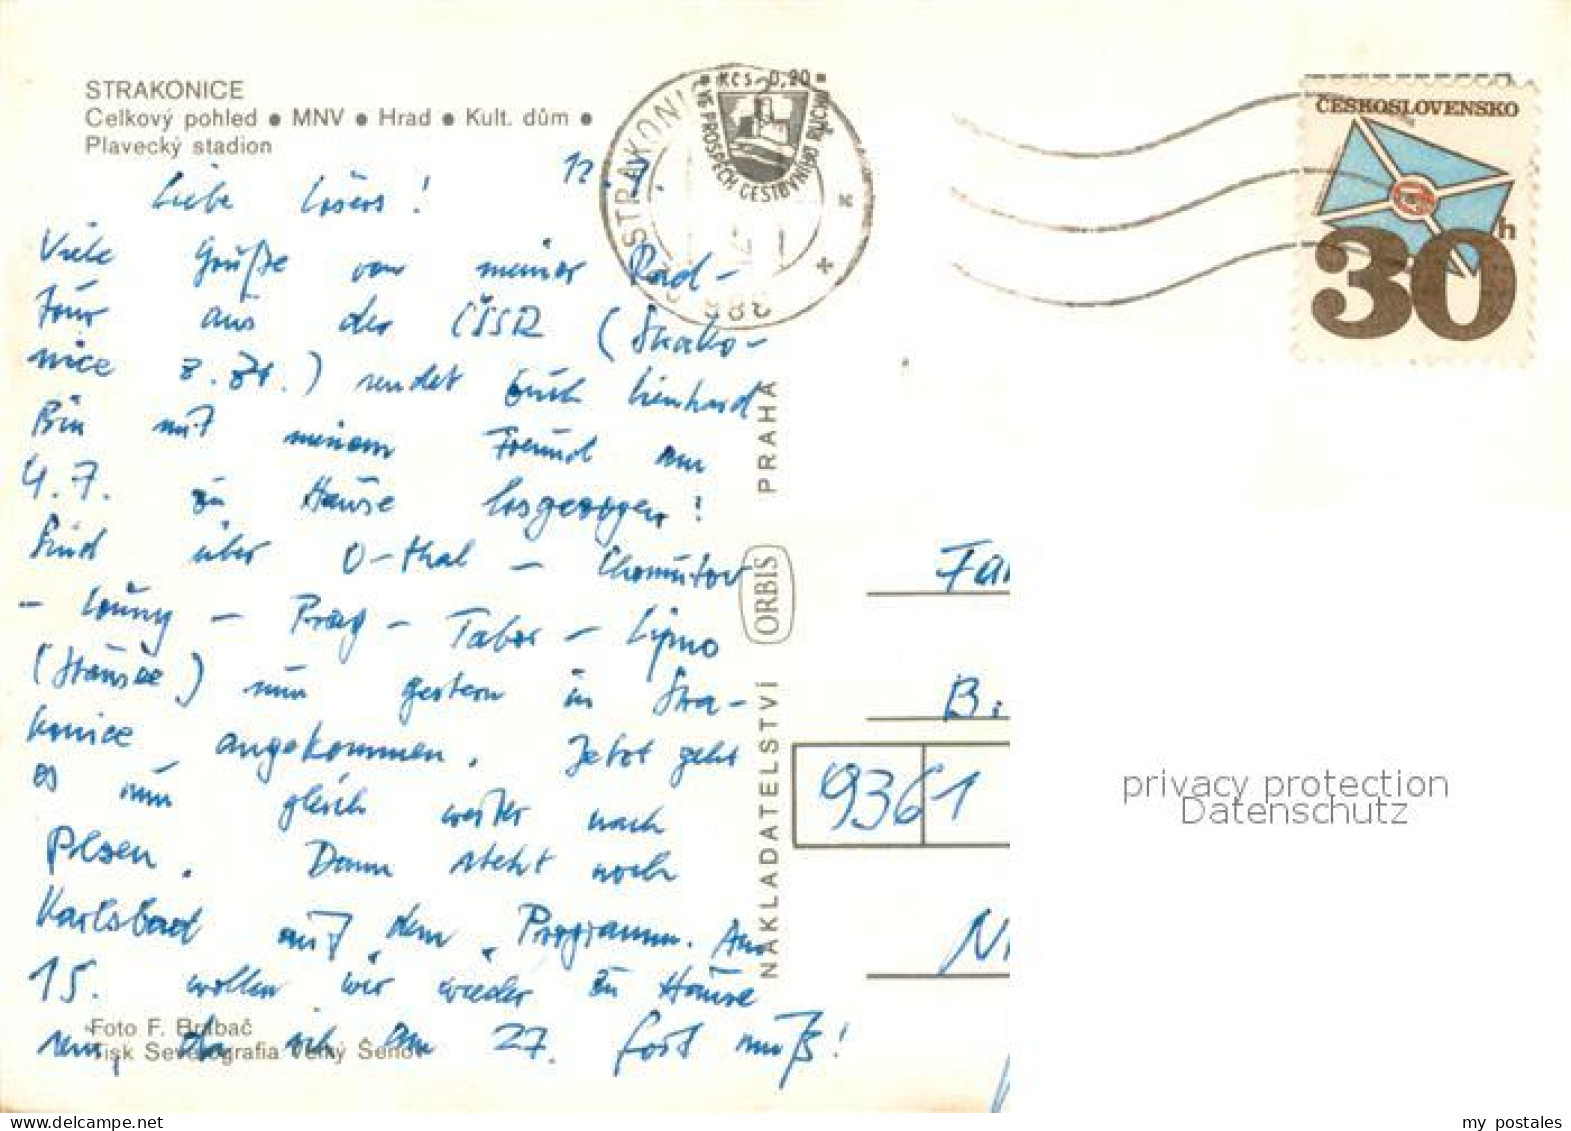 STRAKONICE
Celkový pohled ● MNV ● Hrad ● Kult. dům ●
Plavecký stadion
12. 7.
Liebe !
Viele Grüße von meiner Rad-
tour aus der ČSSR (Strako-
nice z. Zt.) sendet Euch Lienhard
Bin mit meinem Freund am
4.7. zu Hause losgezogen!
Sind über O-thal - Chomutov
- Louny - Prag - Tabor - Lipno
(Stausee) nun gestern in Stra-
konice angekommen. Jetzt geht
es nun gleich weiter nach
Pilsen. Dann steht noch
Karlsbad auf dem Programm. Am
15. wollen wir wieder zu Hause
sein, da ich am 27. fort muß!
Foto F. Brabač
Tisk Severografia Velký Šenov
NAKLADATELSTVÍ ORBIS PRAHA
STRAKONICE
KČS 0,20
VE PROSPĚCH CESTOVNÍHO RUCHU
ČESKOSLOVENSKO
30 h
Fam
B.
9361
privacy protection
Datenschutz
my_postales